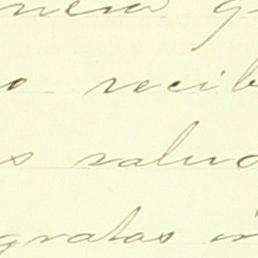 nera g
o recib
s salud
gratas in